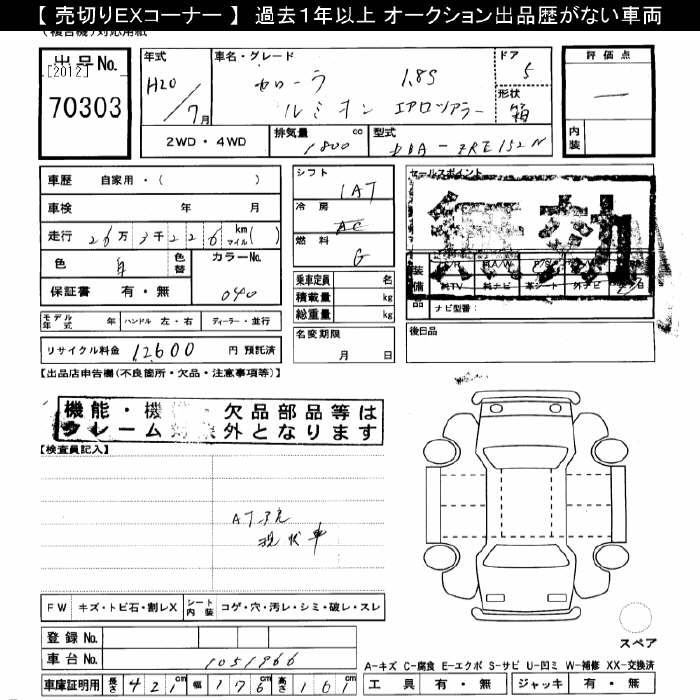 【 売切りEXコーナー 】 過去１年以上 オークション出品歴がない車両
(複合機)対応用紙
出品No.
[2012]
70303
年式
H20/7月
車名・グレード
カローラ 1.8S
ルミオン エアロツアラー
ドア
5
形状
箱
評価点
内装
2WD・4WD
排気量 1800 cc
型式 DBA-ZRE152N
車歴 自家用・( )
車検 年 月
走行 26万3千226 km マイル( )
色 白 色替
カラーNo. 040
保証書 有・無
モデル年式 年 ハンドル 左・右 ディーラー・並行
リサイクル料金 12,600 円 預託済
シフト
IAT
冷房
AC
燃料
G
乗車定員 名
積載量 kg
総重量 kg
名変期限
月 日
セールスポイント
装備品
純TV 純ナビ 革シート 外ナビ
ナビ型番:
後日品
【出品店申告欄(不良箇所・欠品・注意事項等)】
機能・機 欠品部品等は
クレーム対象外となります
【検査員記入】
現状車
FW キズ・トビ石・割レX シート内装 コゲ・穴・汚レ・シミ・破レ・スレ
登録 No.
車台 No. 1051966
車庫証明用 長さ 421cm 幅 176cm 高さ 161cm
スペア
A-キズ C-腐食 E-エクボ S-サビ U-凹ミ W-補修 XX-交換済
工具 有・無 ジャッキ 有・無